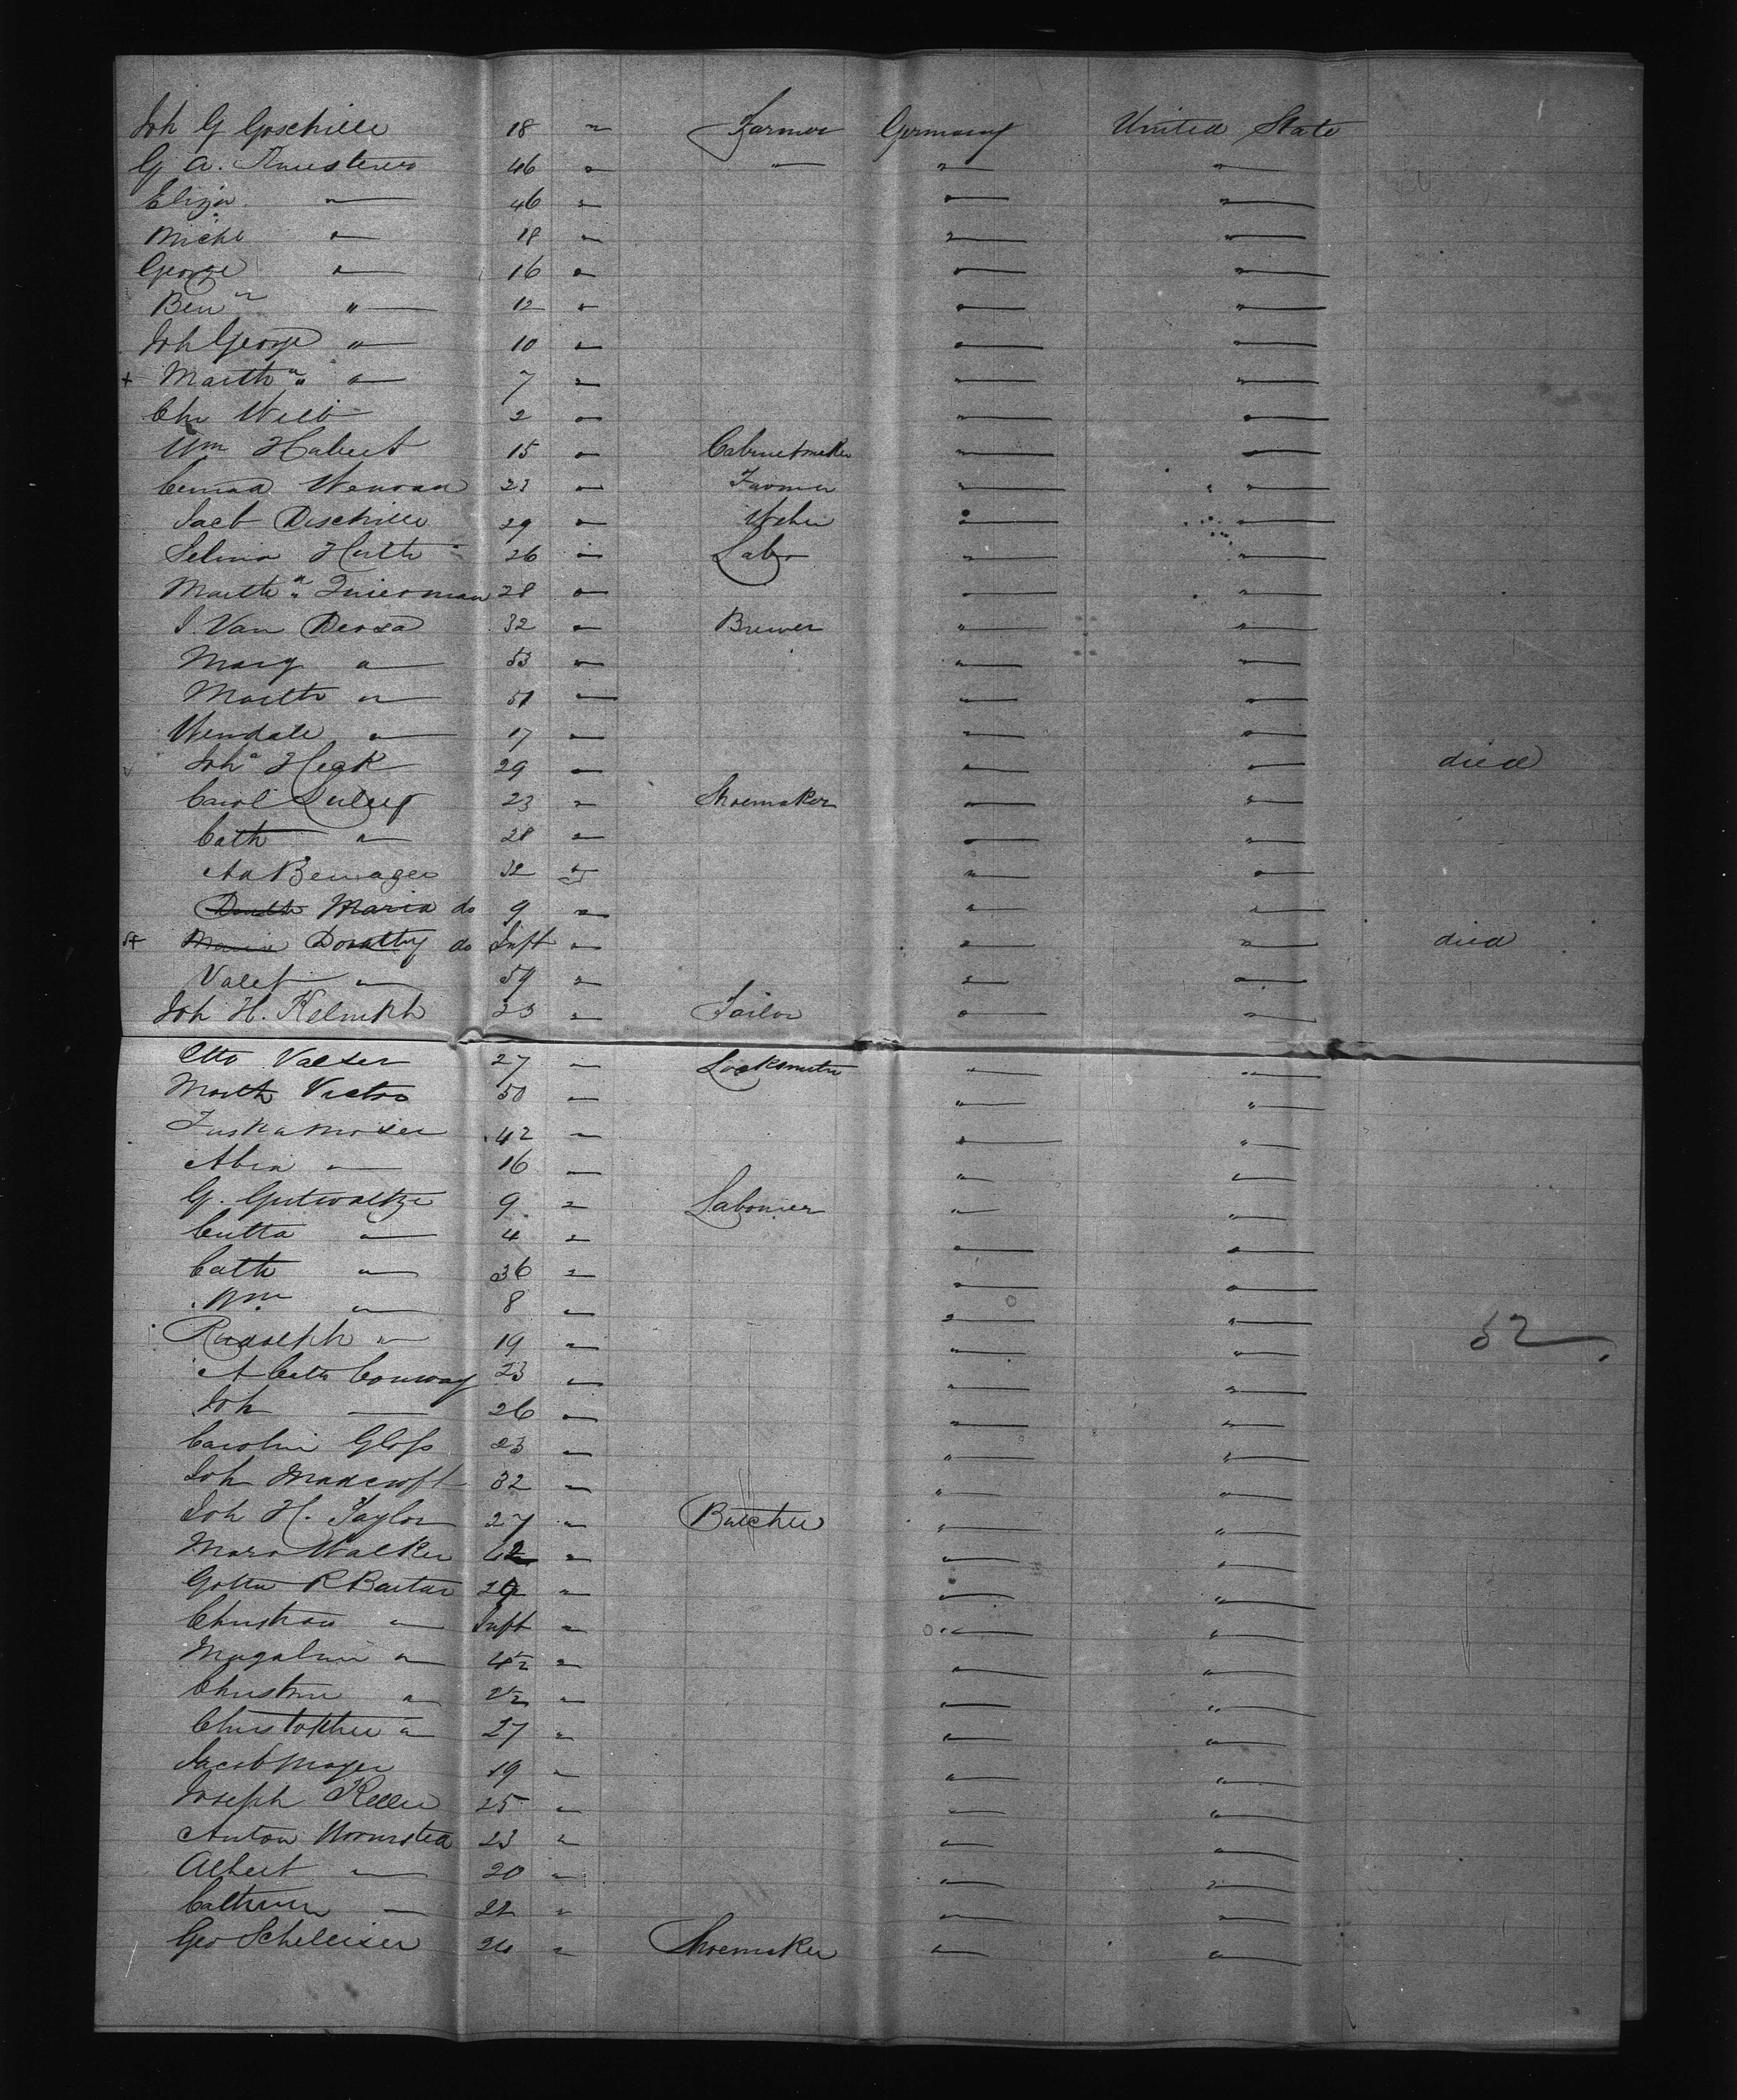 Joh G Goschille 18 " Farmer Germany United State
G A. 46 " " " "
Eliza " 46 " " "
Michl " 18 " " "
George " 16 " " "
Ben " 12 " " "
Joh George " 10 " " "
+ Marth " 7 " " "
Chr Will 2 " " "
Wm Habert 15 " Cabinetmaker " "
23 " Farmer " "
Jacb Dischille 29 " Weber " "
Selina Huth 26 " Labr " "
Marth 28 " " "
J. Van Dersa 32 " Brewer " "
Marg " 53 " " "
Marth " 51 " " "
Wendale " 17 " " "
Joh Heak 29 " " " died
Carol 23 " Shoemaker " "
Cath " 28 " " "
An 32 " " "
Maria do 9 " " "
Dorothy do Inft " " " died
Valet " 59 " " "
Joh H. Kelmkh 23 " Tailor " "
Otto Valser 27 " Locksmith " "
Marth Victor 50 " " "
42 " " "
Abra " 16 " " "
G. Gutwaltze 9 " Labourer " "
Cutta " 4 " " "
Cath " 36 " " "
Wm " 8 " " "
Rudolph " 19 " " " 52
A Cath Conway 23 " " "
Joh " 26 " " "
Carolin Gloss 23 " " "
Joh Madcroft 32 " " "
Joh H. Taylor 27 " Butcher " "
Mara Walker " " "
R Bartar " " "
Christian " Inft " " "
Magalini " 4½ " " "
Christin " 2½ " " "
Christopher " 27 " " "
Jacob Mayer 19 " " "
Joseph Keller 25 " " "
Anton Wormsted 23 " " "
Albert " 20 " " "
Cathrin " 22 " " "
Geo Scheleiser 24 " Shoemaker " "